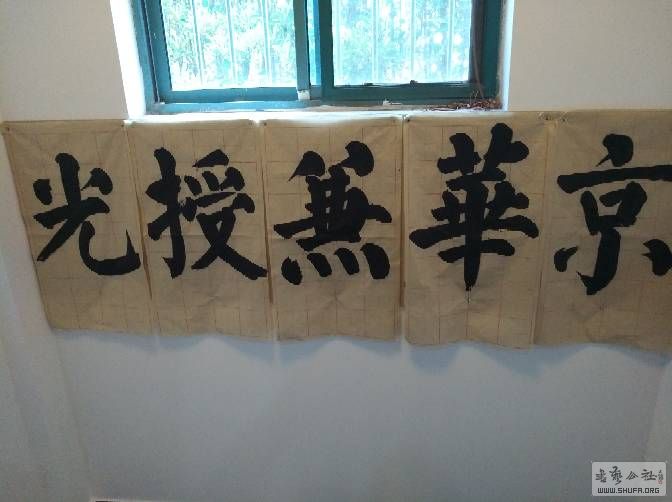 京華兼授光
书艺公社
WWW.SHUFA.ORG